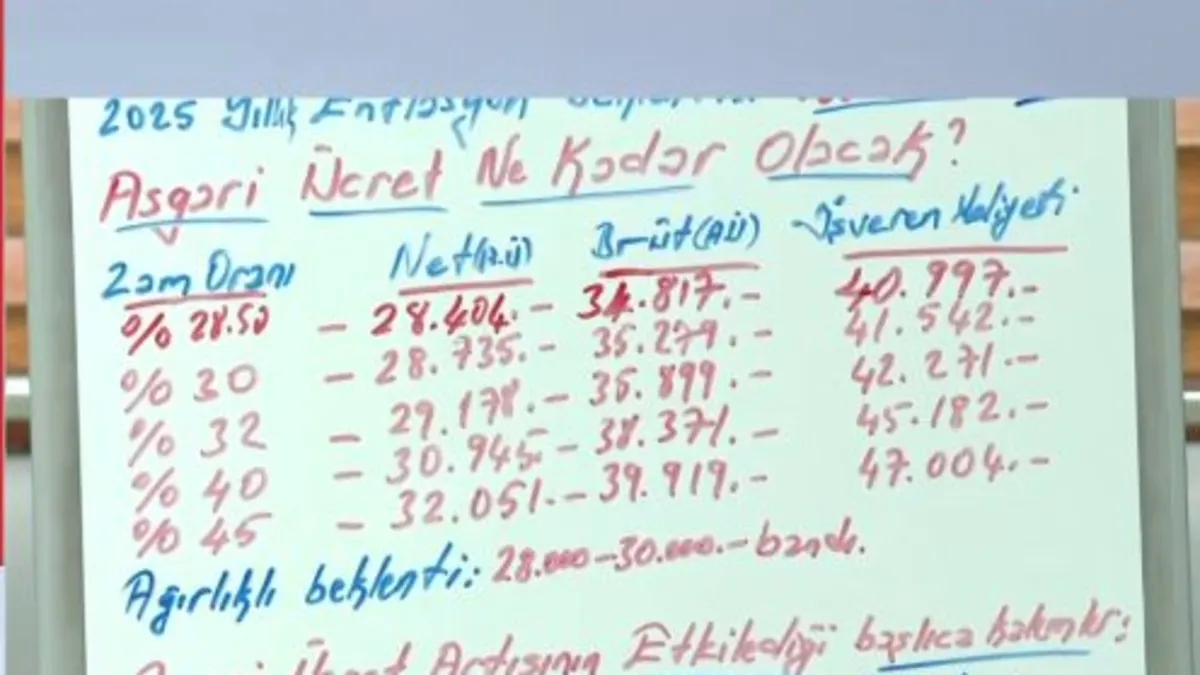 2025 Yıllık Enflasyon
Asgari Ücret Ne Kadar Olacak?
Zam Oranı Net(A.Ü) Brüt(AÜ) İşveren Maliyeti
% 28.50 - 28.404.- 34.817.- 40.997.-
% 30 - 28.735.- 35.279.- 41.542.-
% 32 - 29.178.- 35.899.- 42.271.-
% 40 - 30.945.- 38.371.- 45.182.-
% 45 - 32.051.- 39.919.- 47.004.-
Ağırlıklı beklenti: 28.000-30.000.- bandı.
Ücret Artışının Etkilediği başlıca kalemler: